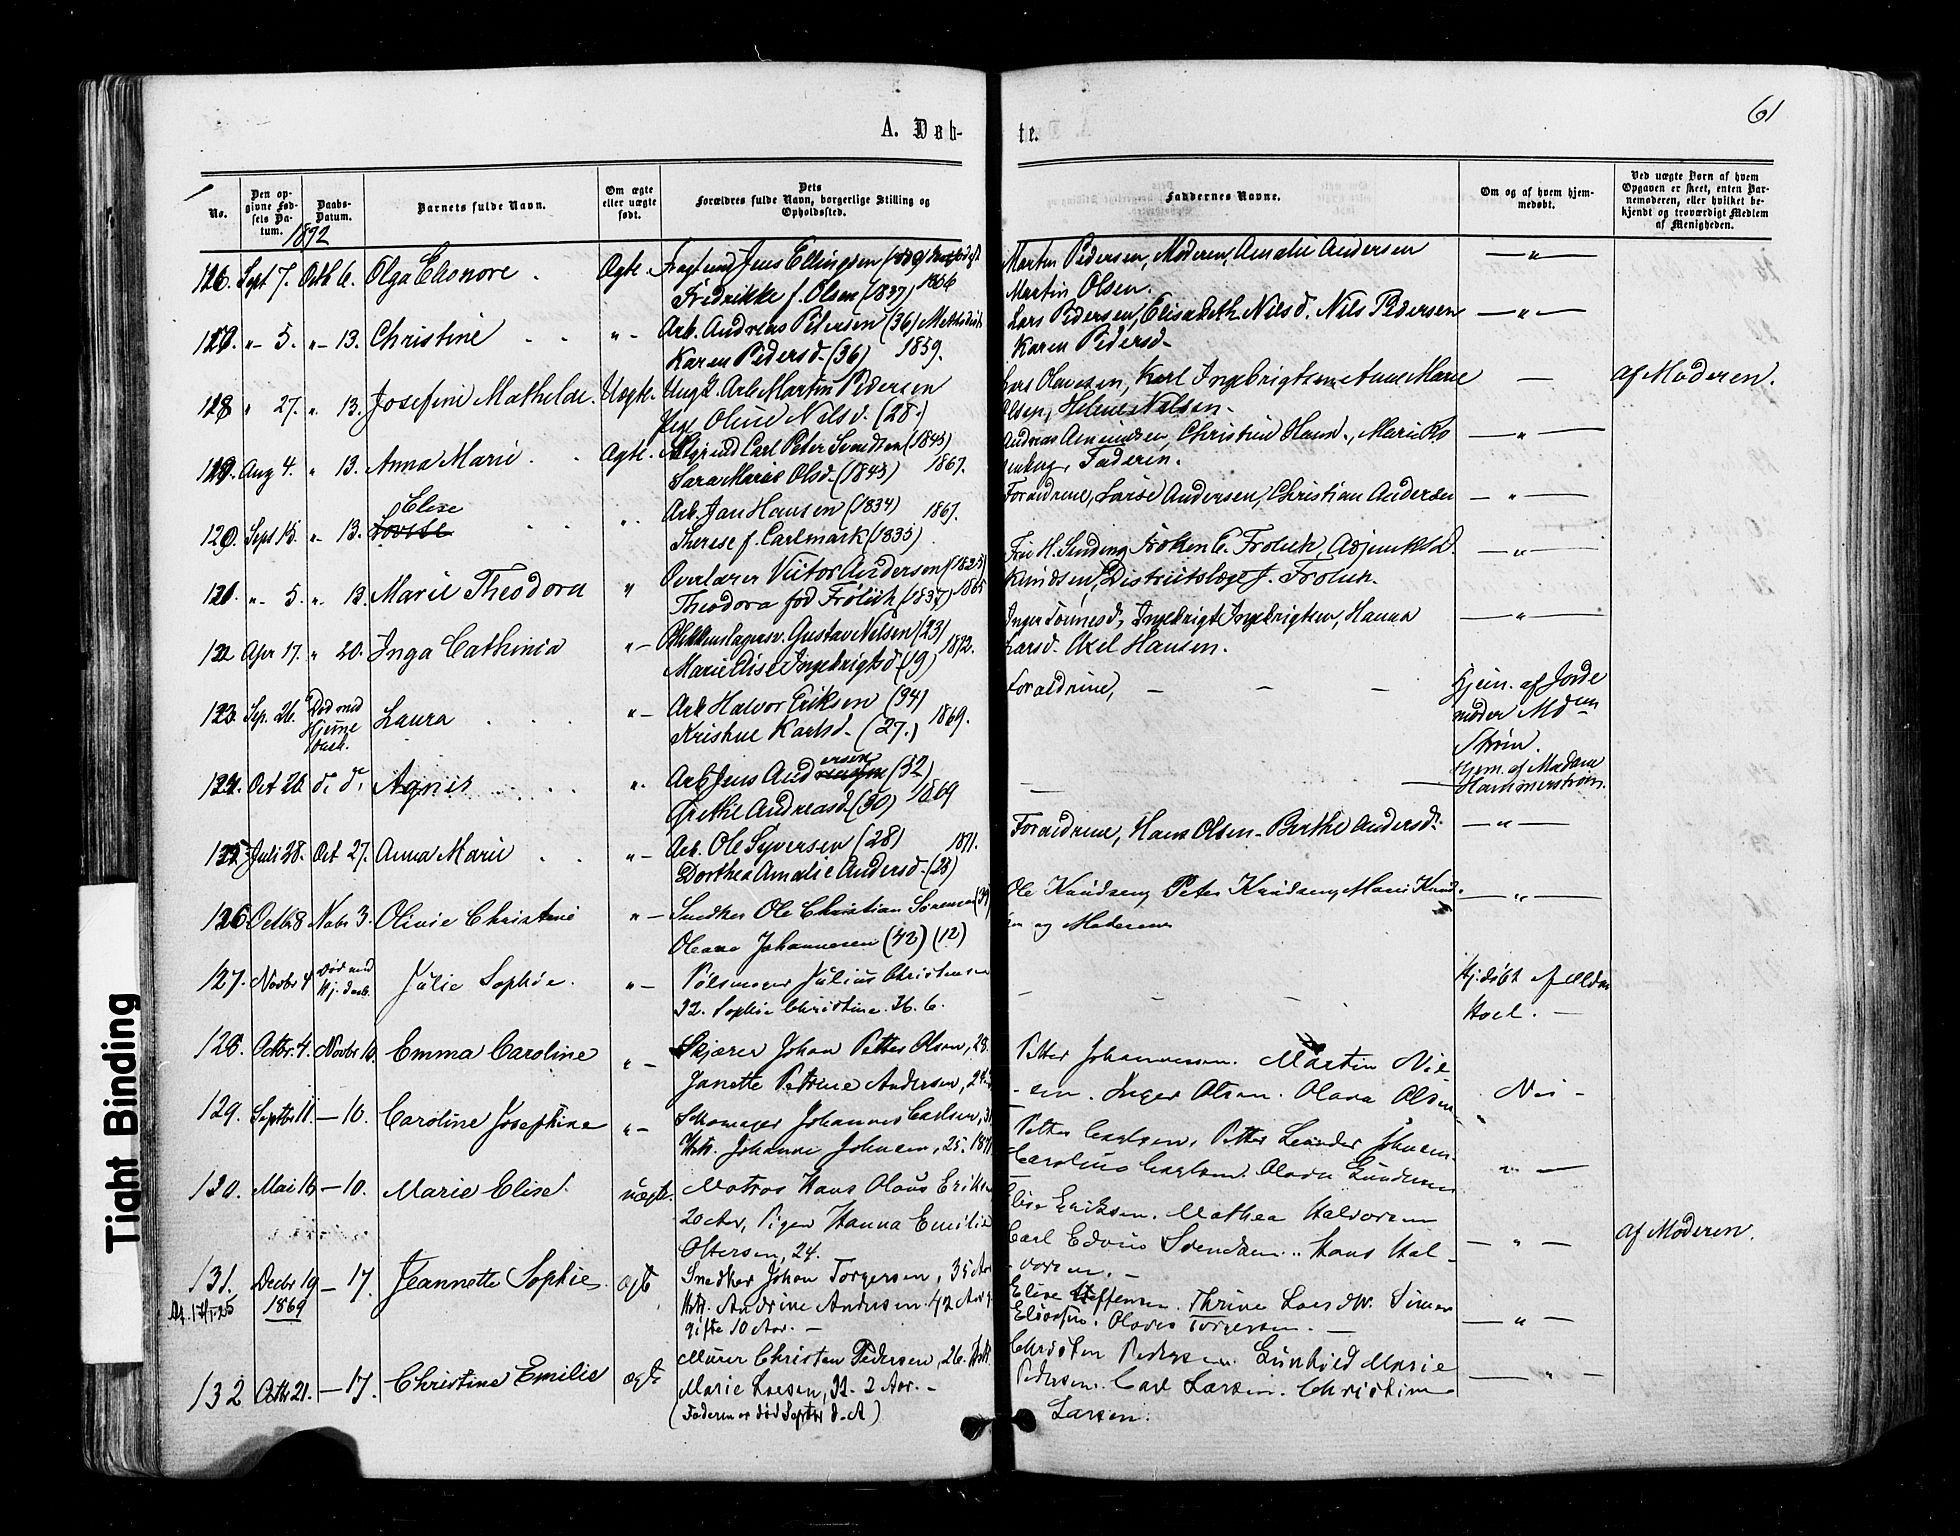 61
A. Døb-
te.
No.
Den opgivne Fødsels Datum.
Daabs-Datum.
Barnets fulde Navn.
Om ægte eller uægte født.
Dets Forældres fulde Navn, borgerlige Stilling og Opholdssted.
Faddernes Navne.
Om og af hvem hjemmedøbt.
Ved uægte Børn af hvem Opgaven er skeet, enten Barnemoderen, eller hvilket bekjendt og troværdigt Medlem af Menigheden.
1872
Sept 7. Octb 6. Olga Elionore . Ægte. Jens Ellingsen Martin Pedersen, Moderen, Amalie Andersen — " —
Fredrikke f. Olsen (1837) 1856 Martin Olsen.
" 5. " 13. Christine . . " — Arb. Andreas Pedersen (36) Methodist Lars Pedersen, Elisabeth Nilsd. Nils Pedersen — " —
Karen Pedersd. (36) 1859. Karen Pedersd.
" 27. " 13. Josefine Mathilde. Uægte. Ungk. Arb. Martin Pedersen Lars Olavesen, Karl Ingebrigtsen, Anne Marie — af Moderen.
Pige Oline Nilsd. (28.) Olsen, Helene Nilsen.
Aug 4. " 13. Anna Marie . . Ægte. Carl Peter Svendsen (1845) Andreas Amundsen, Christin Hansd., Marie Ro — " —
Sara Marie Olsd. (1843) 1867. senberg, Faderen.
Elise
Sept 15. " 13. Lovise . . " . Arb. Jan Hansen (1834) 1867. Foraldrene, Larse Andersen, Christian Andersen — " —
Therese f. Carlmark (1835)
121. " 5. " 13. Marie Theodora " Overlærer Victor Andersen (1825) Fru H. Sinding, Frøken C. Frølich, Adjunkt Kl. — " —
Theodora fød Frølich (1837) 1865 Knudsen, Districtslæge J. Frolich.
122 Apr 17. " 20. Inga Cathinia " — Gustav Nilsen (23) Inger Tønnesd, Ingebrigt Ingebrigtsen, Hanna — " —
Marie Elise Ingebrigtsd. (19) 1872. Larsd. Axel Hansen.
123. Sep. 26. Død med Hjemme daab. Laura . . . " — Arb Halvor Eriksen (34) Foraldrene, — — — Hjem. af Jorde
Kristine Karlsd. (27.) 1869. moder Mdm
Strøm.
124. Oct 26. do do Agnes . . . " . Arb Jens Andersen (32) — — Hjem. af Madam
Grethe Andreasd (30) 1869 Hammerstrøm.
125. Juli 28. Oct 27. Anna Marie . . " — Arb. Ole Syversen (28) 1871. Foraldrene, Hans Olsen - Berthe Andersd. — " —
Dorthea Amalie Andersd. (28)
126 Octb 8 Novbr 3. Olivie Christine " — Snedker Ole Christian Sørensen (39) Ole Knudsen, Peter Knudsen, Marie Knud- — " —
Oleane Johannesen (42) (12) sen og Moderen
127. Novbr 4 Død med Hj. daab. Julie Sophie. " — Pølsemager Julius Christensen — — — Hj. døbt af Mdm
32. Sophie Christine. 36. 6. Hoel. —
128. Octbr. 4. Novbr 10 Emma Caroline " — Skjærer Johan Petter Olsen, 28. Petter Johannesen. Martin Niel
Janette Petrine Andersen, 24 sen. Inger Olsen. Olava Olsen Nei -
129. Septbr 11. — 10. Caroline Josephine " — Skomager Johannes Carlsen, 31 Petter Carlsen. Petter Leander Johnsen.
Hstr. Johanne Johnsen, 25. 1871 Caroline Carlsen. Olava Gundersen " —
130. Mai 16 — 10. Marie Elise. uægte. Matros Hans Olaus Eriksen Elise Eriksen. Mathea Halvorsen
20 Aar, Pigen Hanna Emilie Carl Edvin Svendsen. Hans Hal- — " — af Moderen.
Ottersen, 24. vorsen. —
131. Decbr 19 — 17. Jeannette Sophie. ægte Snedker Johan Torgersen, 35 Aar Elise Steffensen. Thrine Larsdtr. Simen
1869 Hstr. Andrine Andersen. 42 Aar Olava Torgersen. — — " —
gifte 10 Aar. —
Murer Christen Pedersen, 26. Hstr. Christen Pedersen. Gunhild Marie
132 Octbr 21. — 17. Christine Emilie ægte Marie Larsen, 32 - 2 Aar. - Pedersen. Carl Larsen. Christine — " —
(Faderen er død Septbr d. A) Larsen.
Tight Binding